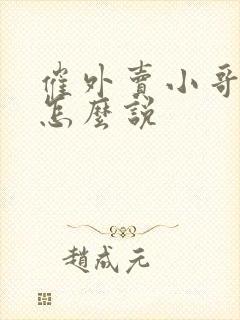 催外賣小哥
怎麼說
趙成元